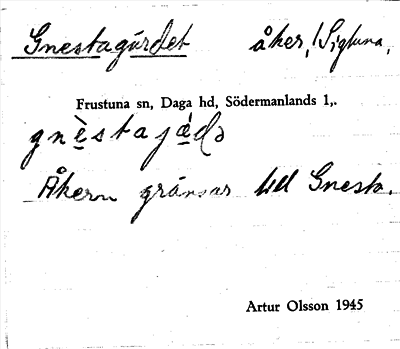 Gnestagärdet åker, Sigtuna,
Frustuna sn, Daga hd, Södermanlands l,.
gnèstajä́də
Åkern gränsar till Gnesta.
Artur Olsson 1945